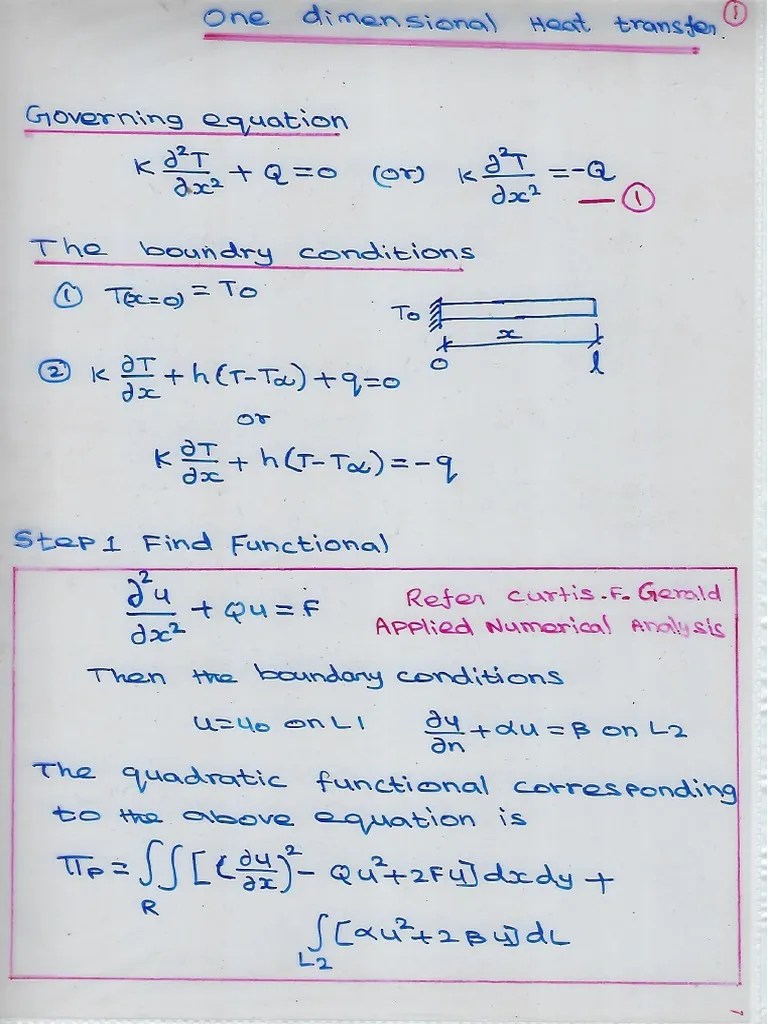 One dimensional Heat transfer. ①
Governing equation
K ∂²T/∂x² + Q = 0 (or) K ∂²T/∂x² = -Q — ①
The boundry conditions
① T(x=0) = To
To
x
0 l
② K ∂T/∂x + h(T-Tα) + q = 0
or
K ∂T/∂x + h(T-Tα) = -q
Step 1 Find Functional
∂²u/∂x² + Qu = F
Refer Curtis.F. Gerald
Applied Numerical Analysis
Then the boundary conditions
u=u0 on L1 ∂u/∂n + αu = β on L2
The quadratic functional corresponding
to the above equation is
πp = ∫∫R [(∂u/∂x)² - Qu² + 2Fu] dxdy +
∫L2 [αu² + 2βu] dL